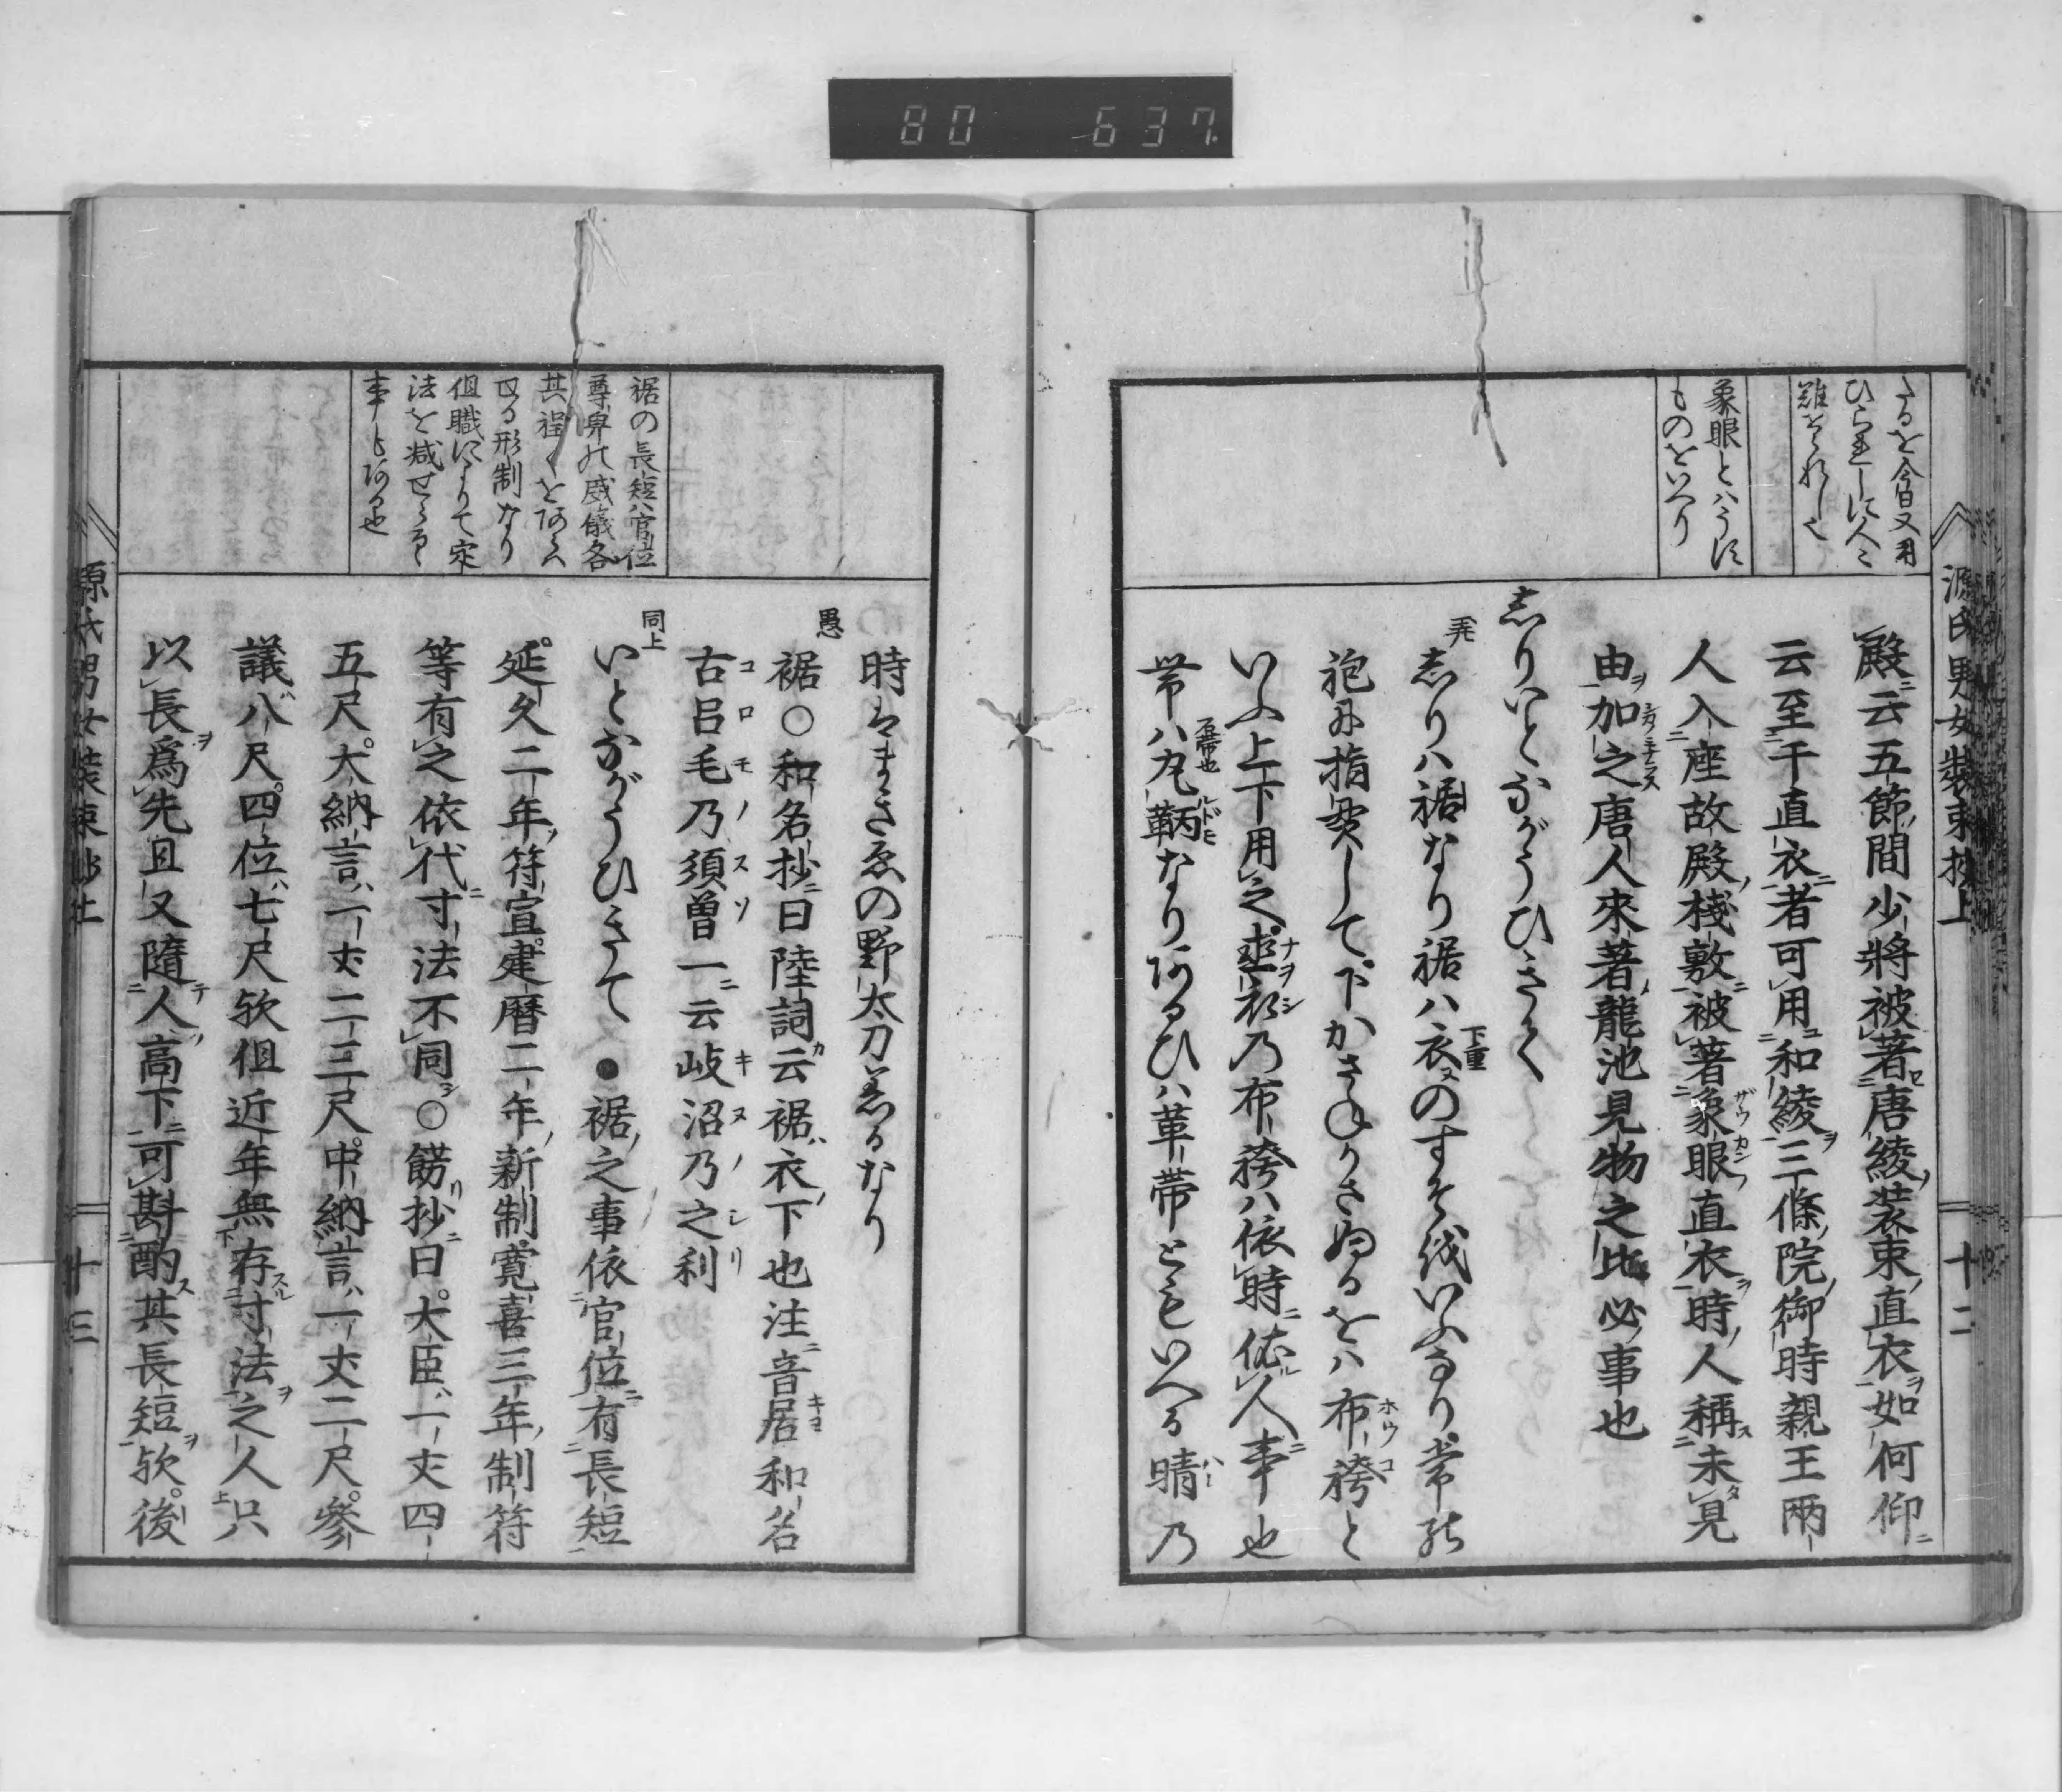 80 637
源氏男女装束抄上 十二
さるを今日又用
象眼とハうす
ものをいへり
殿云五節間少將被著唐綾装束直衣如何仰
云至于直衣者可用和綾三條院御時親王兩
人入座故殿棧敷被著象眼直衣時人稱未見
由加之唐人來著龍池見物之比必事也
志りいとながうひきて
志りハ裾なり裾ハ衣のすそ越いふなり常の
袍に指貫して下かさねゝさぬるをハ布袴と
いふ上下用之直衣乃布袴ハ依時依人事也
帯ハ丸鞆なりあるひハ革帯ともいへる晴乃
裾の長短ハ官位
尊卑の威儀各
其程〱をあらハ
せる形制なり
但職によりて定
法を減せらるゝ
事もある也
時はまきゑの野太刀なるなり
愚
裾○和名抄曰陸詞云裾衣下也注音居和名
古呂毛乃須曽一云岐沼乃之利
同上
いとながうひきて●裾之事依官位有長短
延久二年符宣建暦二年新制寛喜三年制符
等有之依代寸法不同○餝抄曰大臣一丈四
五尺大納言一丈二三尺中納言一丈二尺參
議八尺四位七尺欤但近年無存寸法之人只
以長爲先且又隨人高下可斟酌其長短欤後
源氏男女装束抄上 十三